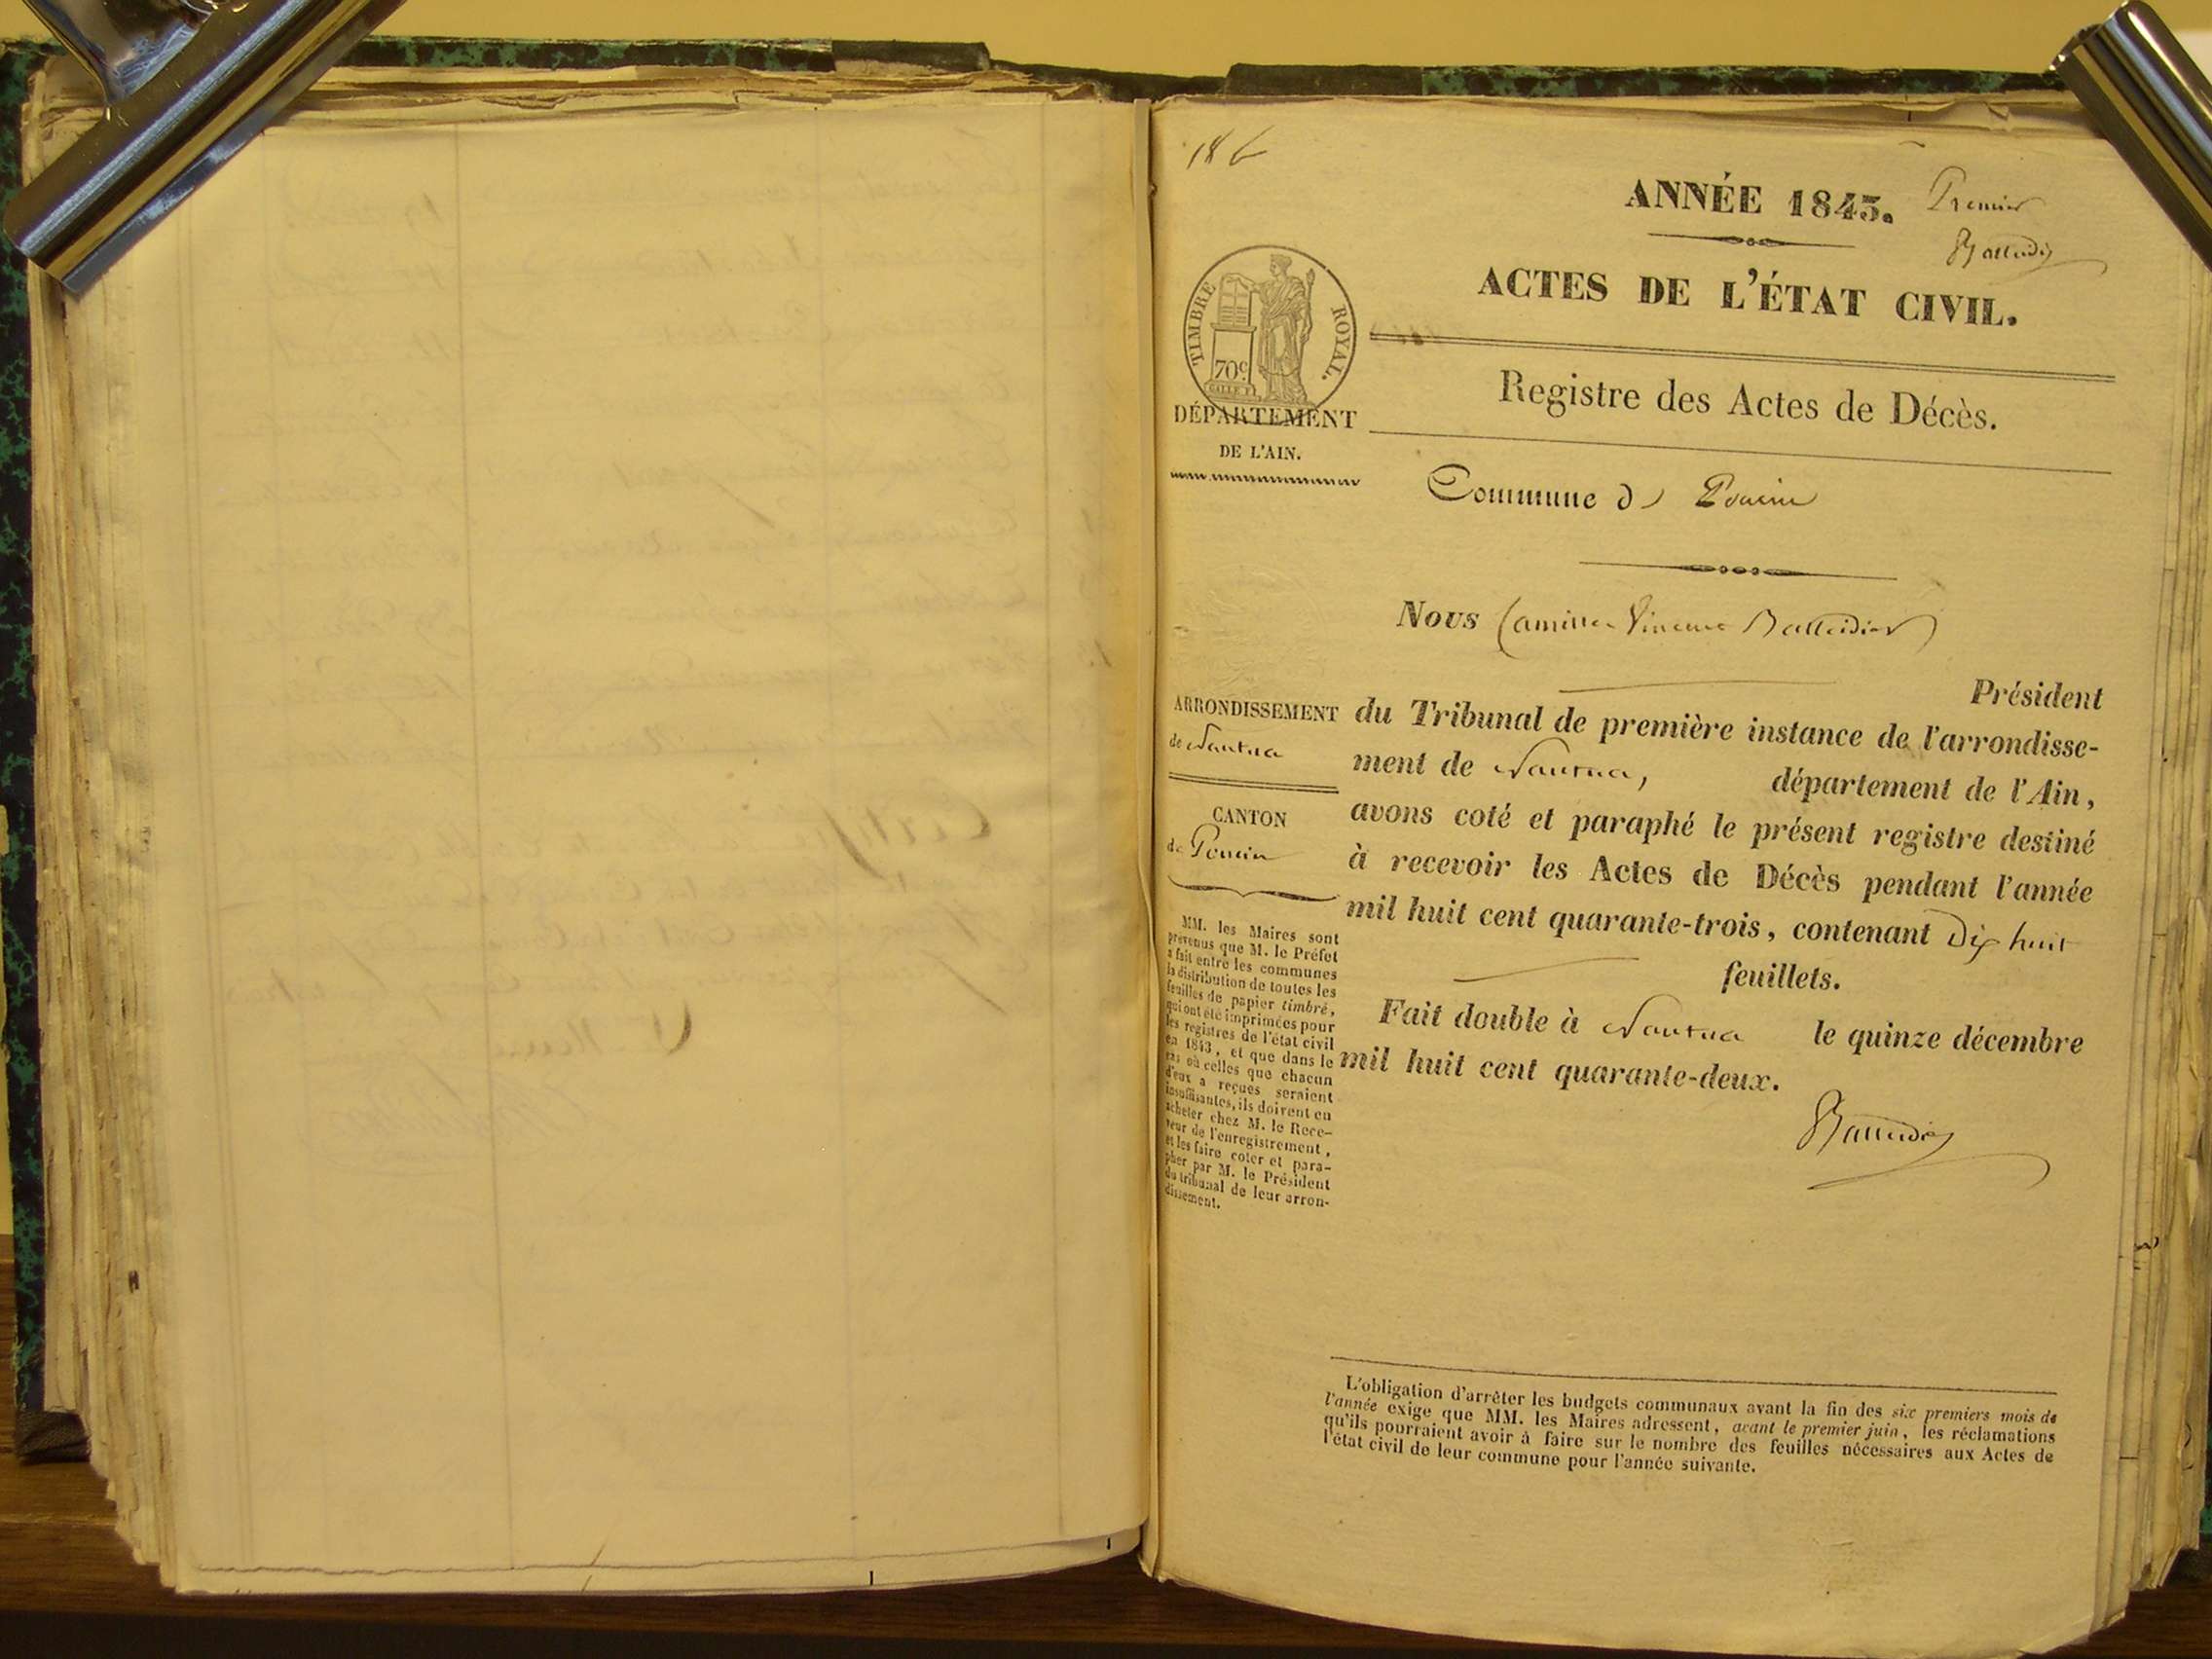 186
ANNÉE 1843. Premier
Balleidier
ACTES DE L'ÉTAT CIVIL.
TIMBRE ROYAL.
70c
DÉPARTEMENT
DE L'AIN.
Registre des Actes de Décès.
Commune de Poncin
Nous Camille Vincent Balleidier
Président
ARRONDISSEMENT
de Nantua
du Tribunal de première instance de l'arrondisse-
ment de Nantua, département de l'Ain,
CANTON
de Poncin
avons coté et paraphé le présent registre destiné
à recevoir les Actes de Décès pendant l'année
mil huit cent quarante-trois, contenant Dix huit
feuillets.
Fait double à Nantua le quinze décembre
mil huit cent quarante-deux.
Balleidier
MM. les Maires sont
prévenus que M. le Préfet
a fait entre les communes
la distribution de toutes les
feuilles de papier timbré,
qui ont été imprimées pour
les registres de l'état civil
en 1843, et que dans le
cas où celles que chacun
d'eux a reçues seraient
insuffisantes, ils doivent en
acheter chez M. le Rece-
veur de l'enregistrement,
et les faire coter et para-
pher par M. le Président
du tribunal de leur arron-
dissement.
L'obligation d'arrêter les budgets communaux avant la fin des six premiers mois de
l'année exige que MM. les Maires adressent, avant le premier juin, les réclamations
qu'ils pourraient avoir à faire sur le nombre des feuilles nécessaires aux Actes de
l'état civil de leur commune pour l'année suivante.